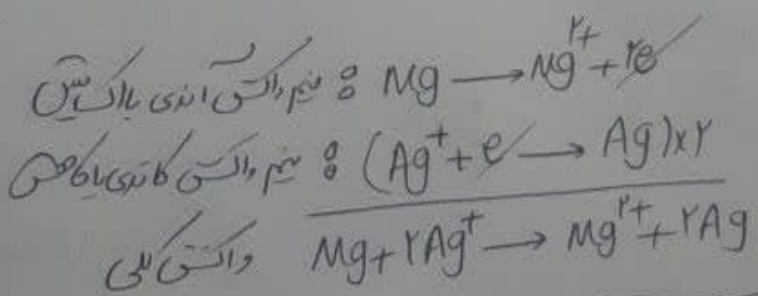 نیم واکنش آندی یا اکسایش : Mg → Mg²⁺ + ۲e
نیم واکنش کاتدی یا کاهش : (Ag⁺ + e → Ag)×۲
واکنش کلی Mg + ۲Ag⁺ → Mg²⁺ + ۲Ag